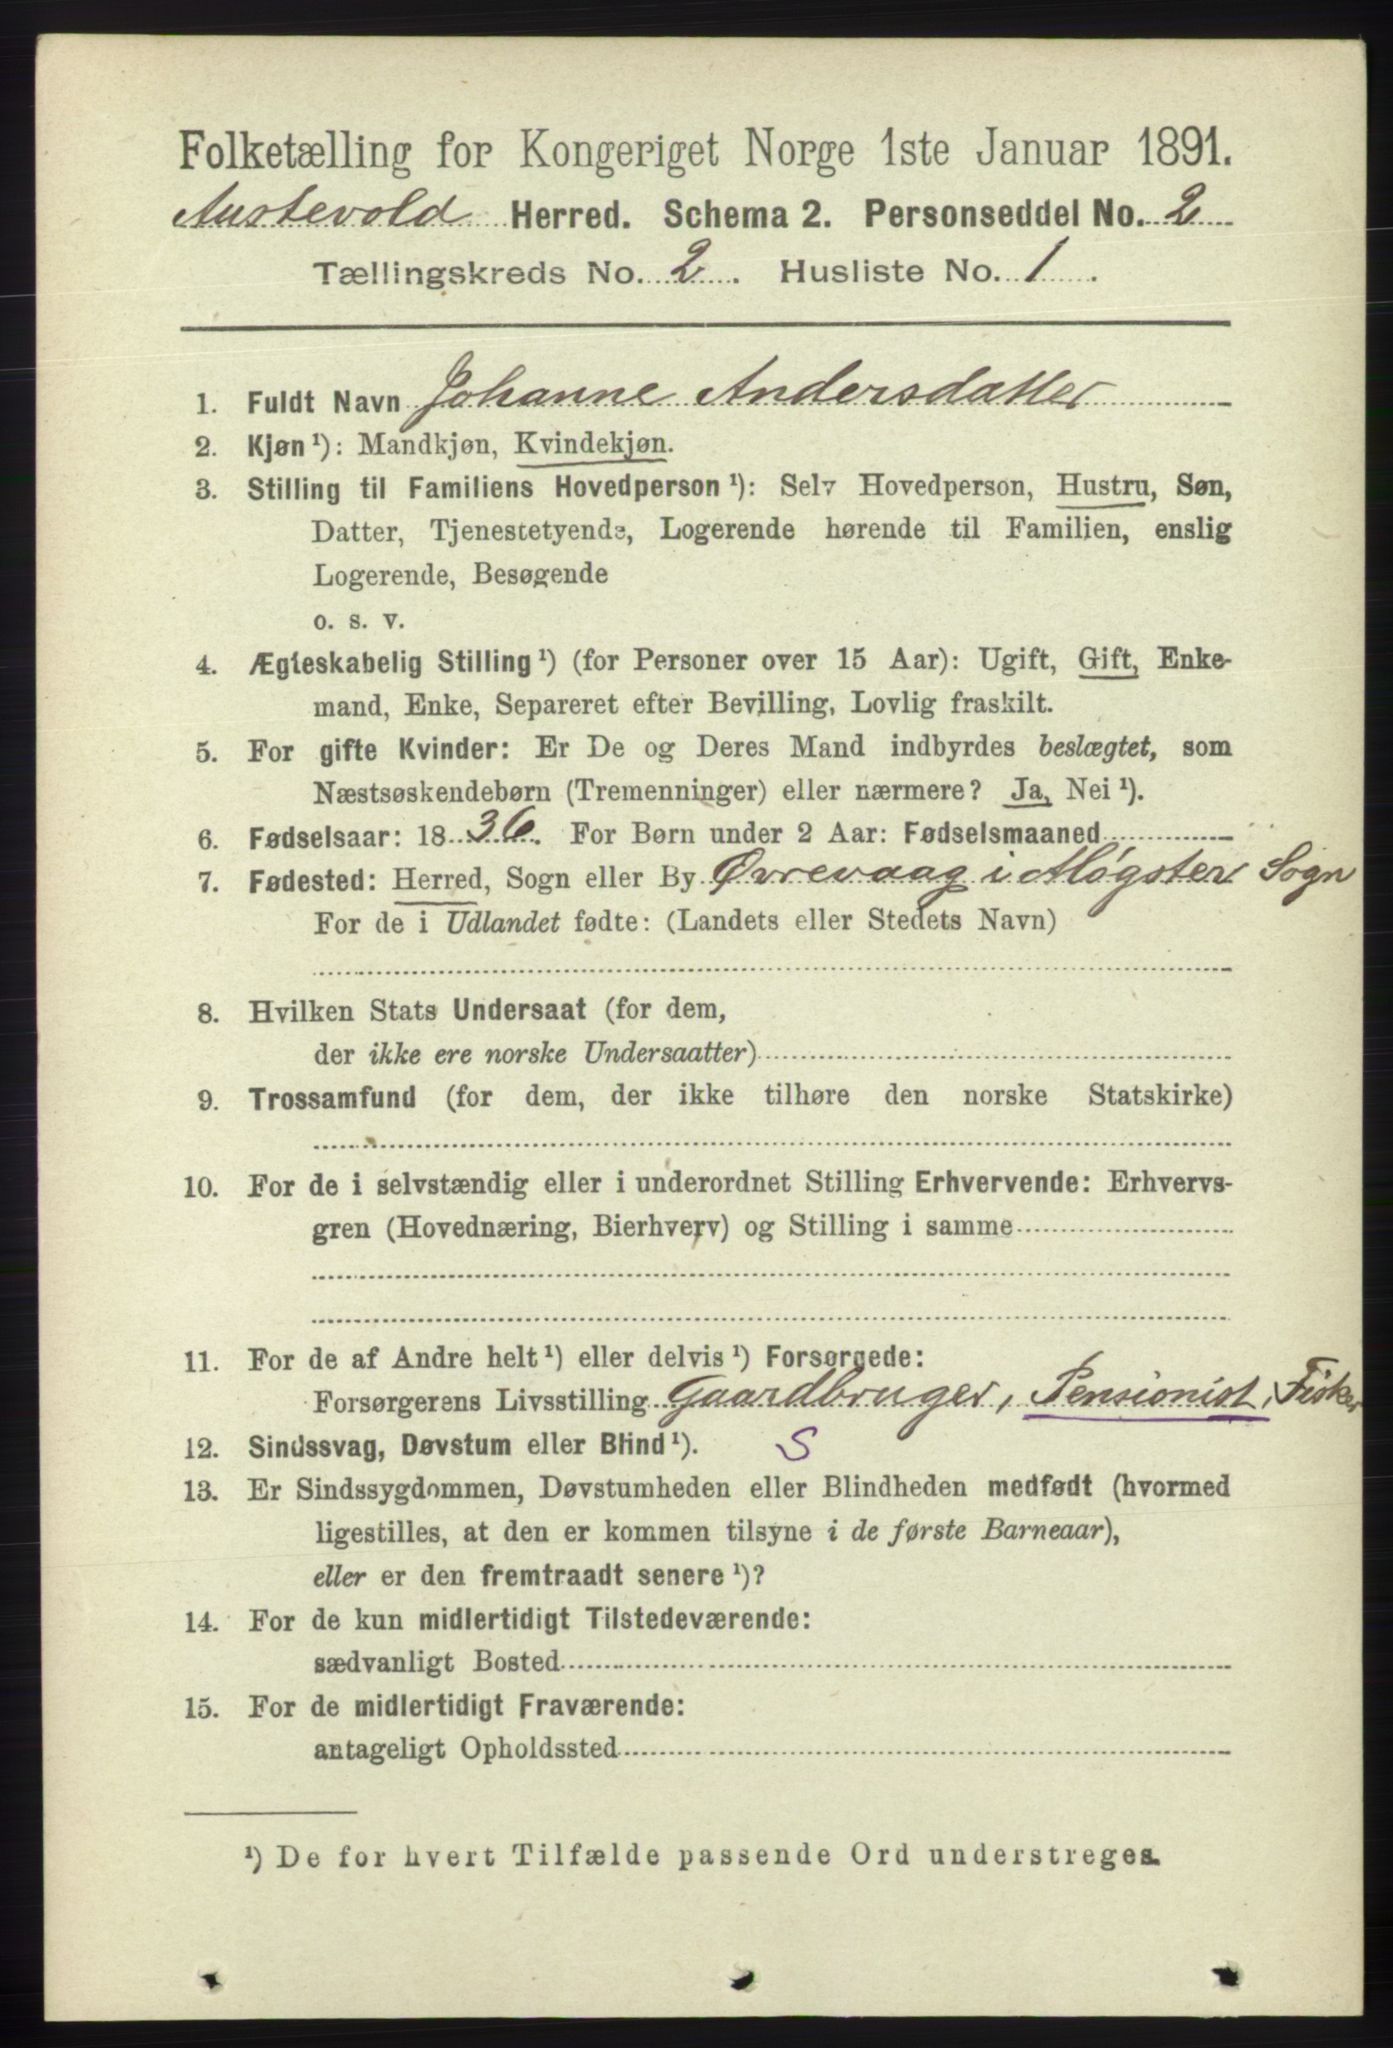 Folketælling for Kongeriget Norge 1ste Januar 1891.
Austevold Herred. Schema 2. Personseddel No. 2
Tællingskreds No. 2. Husliste No. 1.
1. Fuldt Navn Johanne Andersdatter
2. Kjøn¹): Mandkjøn, Kvindekjøn.
3. Stilling til Familiens Hovedperson¹): Selv Hovedperson, Hustru, Søn,
Datter, Tjenestetyende, Logerende hørende til Familien, enslig
Logerende, Besøgende
o. s. v.
4. Ægteskabelig Stilling¹) (for Personer over 15 Aar): Ugift, Gift, Enke-
mand, Enke, Separeret efter Bevilling, Lovlig fraskilt.
5. For gifte Kvinder: Er De og Deres Mand indbyrdes beslægtet, som
Næstsøskendebørn (Tremenninger) eller nærmere? Ja, Nei¹).
6. Fødselsaar: 1836. For Børn under 2 Aar: Fødselsmaaned
7. Fødested: Herred, Sogn eller By Øvrevaag i Møgster Sogn
For de i Udlandet fødte: (Landets eller Stedets Navn)
8. Hvilken Stats Undersaat (for dem,
der ikke ere norske Undersaatter)
9. Trossamfund (for dem, der ikke tilhøre den norske Statskirke)
10. For de i selvstændig eller i underordnet Stilling Erhvervende: Erhvervs-
gren (Hovednæring, Bierhverv) og Stilling i samme
11. For de af Andre helt¹) eller delvis¹) Forsørgede:
Forsørgerens Livsstilling Gaardbruger, Pensionist, Fisker
12. Sindssvag, Døvstum eller Blind¹). S
13. Er Sindssygdommen, Døvstumheden eller Blindheden medfødt (hvormed
ligestilles, at den er kommen tilsyne i de første Barneaar),
eller er den fremtraadt senere¹)?
14. For de kun midlertidigt Tilstedeværende:
sædvanligt Bosted
15. For de midlertidigt Fraværende:
antageligt Opholdssted
¹) De for hvert Tilfælde passende Ord understreges.